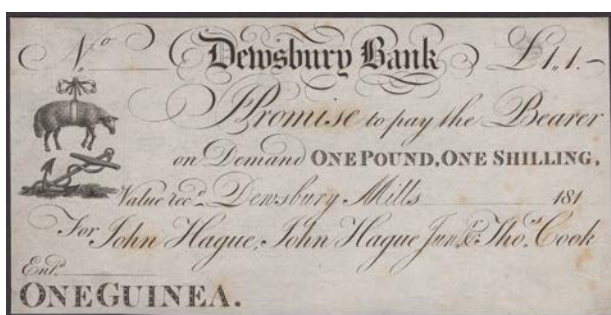 No Dewsbury Bank £1,,1.-
I Promise to pay the Bearer
on Demand ONE POUND, ONE SHILLING,
Value recd. Dewsbury Mills 181
For John Hague, John Hague Junr. & Thos. Cook
Entd.
ONE GUINEA.